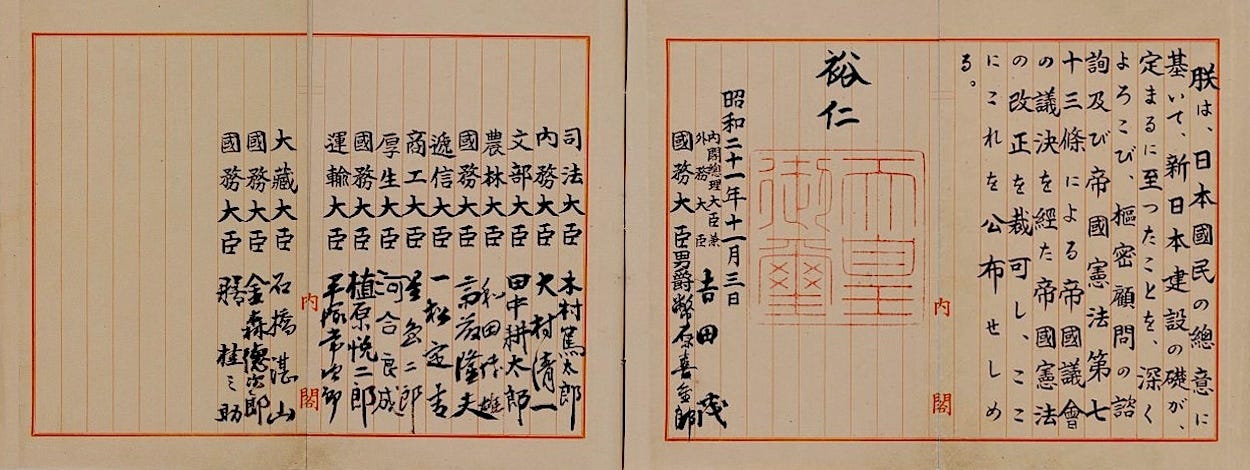 朕は、日本國民の總意に
基いて、新日本建設の礎が、
定まるに至つたことを、深く
よろこび、樞密顧問の諮
詢及び帝國憲法第七
十三條による帝國議會
の議決を經た帝國憲法
の改正を裁可し、ここ
にこれを公布せしめ
る。
内閣
裕仁
天皇
御璽
昭和二十一年十一月三日
内閣總理大臣兼
外務大臣 吉田茂
國務大臣 男爵 幣原喜重郎
司法大臣 木村篤太郎
内務大臣 大村清一
文部大臣 田中耕太郎
農林大臣 和田博雄
國務大臣 斎藤隆夫
遞信大臣 一松定吉
商工大臣 星島二郎
厚生大臣 河合良成
國務大臣 植原悦二郎
運輸大臣 平塚常次郎
内閣
大藏大臣 石橋湛山
國務大臣 金森德次郎
國務大臣 膳桂之助